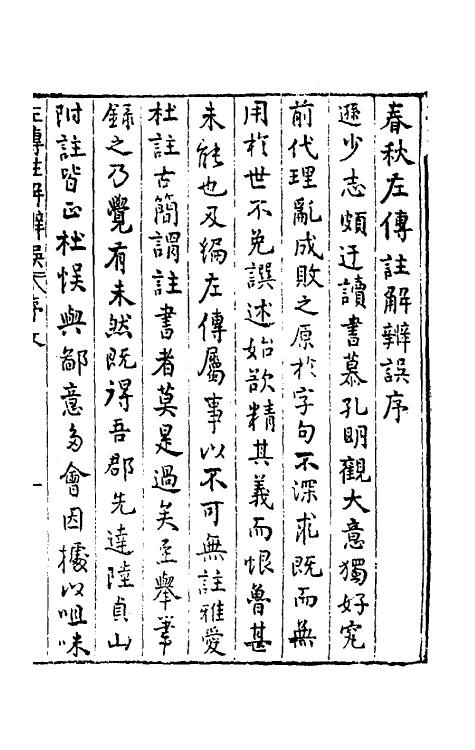 春秋左傳註解辨誤序
遜少志頗迂讀書慕孔明觀大意獨好究
前代理亂成敗之原於字句不深求既而無
用於世不免譔述始欲精其義而恨魯甚
未能也及編左傳屬事以不可無註雅愛
杜註古簡謂註書者莫是過矣至舉筆
錄之乃覺有未然既得吾郡先達陸貞山
附註皆正杜悞與鄙意多會因據以咀味
左傳註解辨誤 序文 一